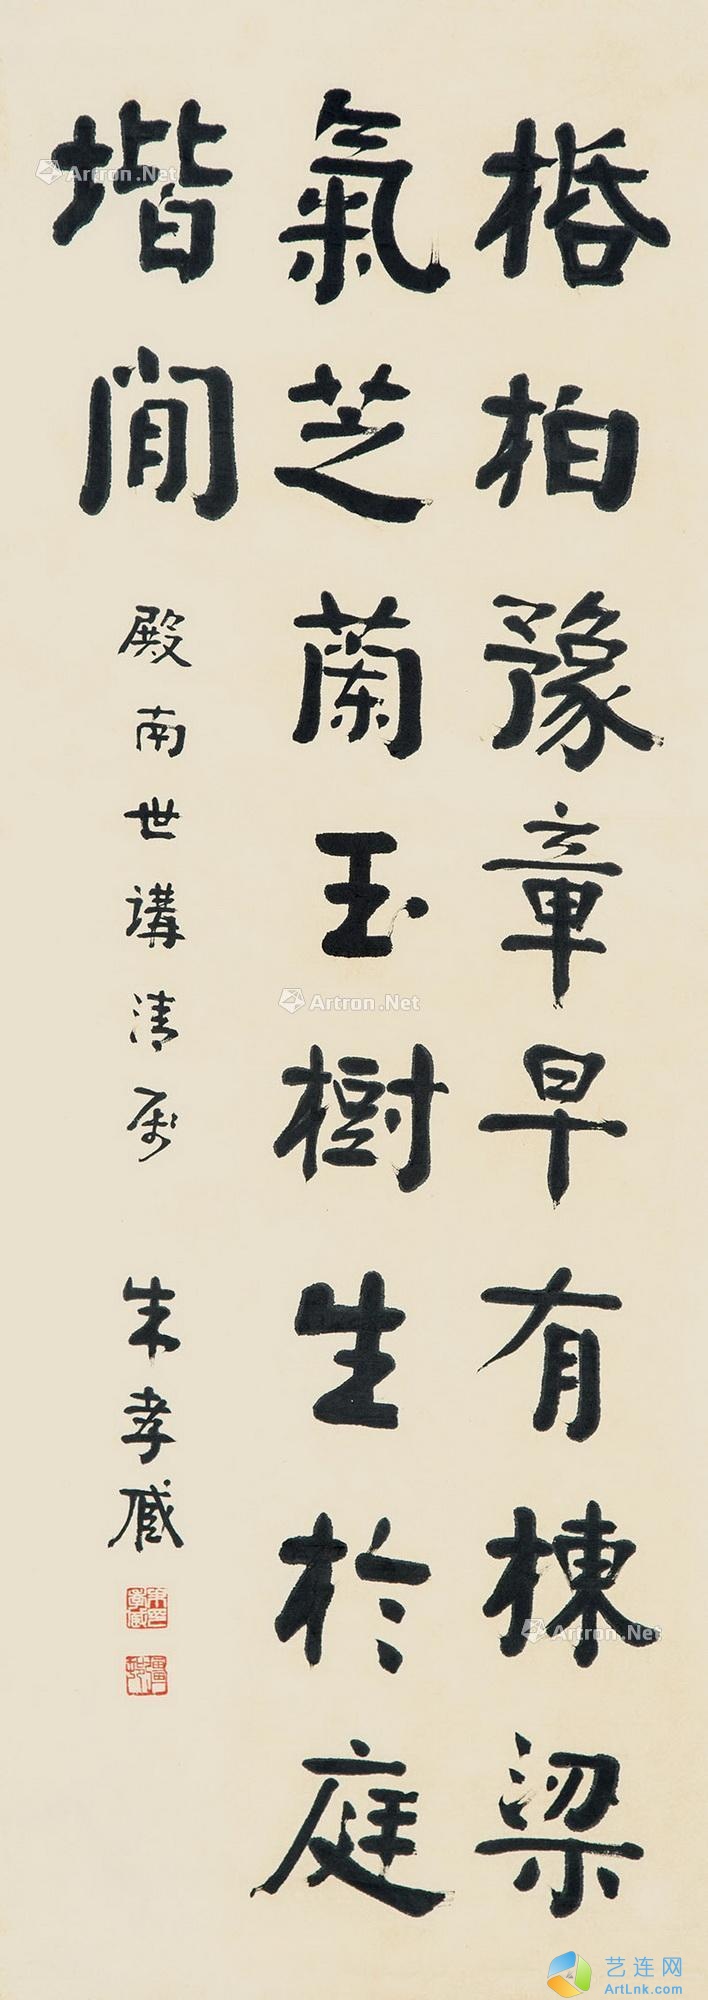 柏豫章早有棟梁
氣芝蘭玉樹生於庭
堦閒
殿南世講清屬
朱孝臧
Artron.Net
Artron.Net
Artron.Net
艺连网
ArtLnk.com